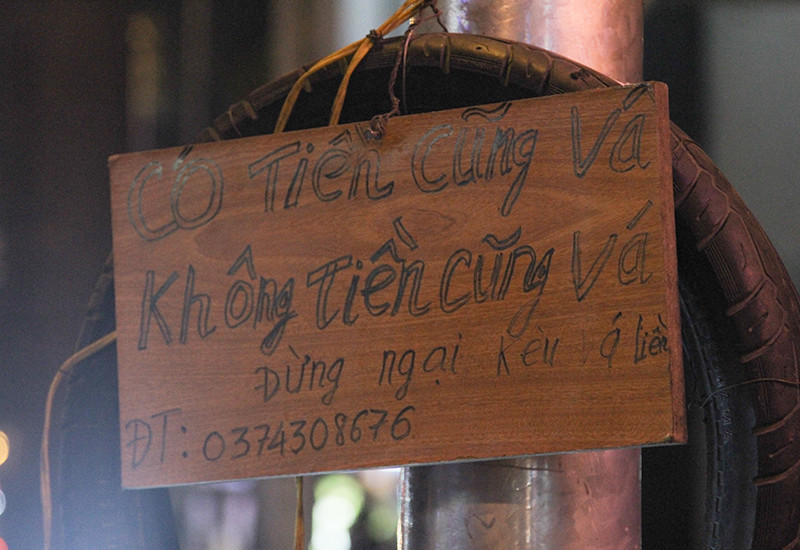 Có Tiền Cũng Vá
Không Tiền Cũng Vá
Đừng ngại kêu vá liền
ĐT: 0374308676